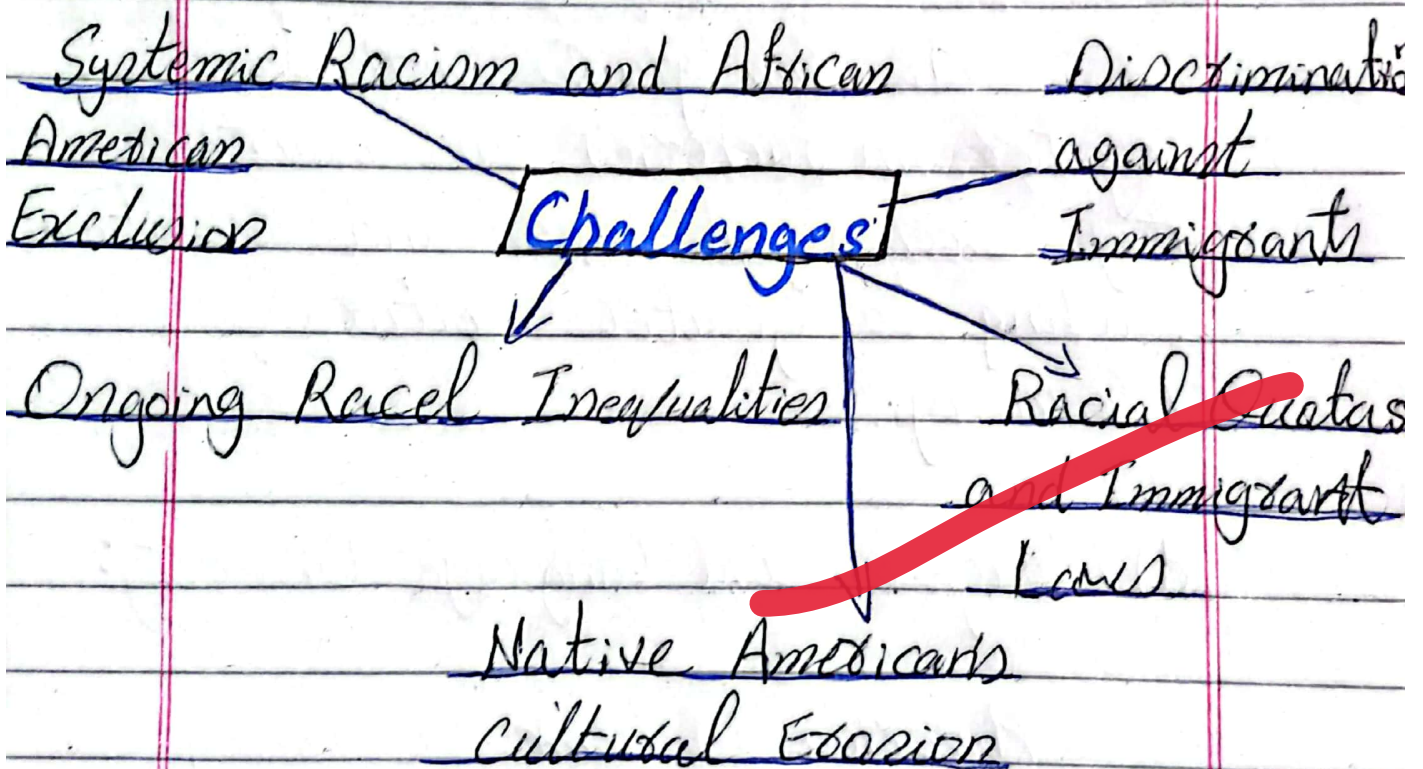 Systemic Racism and African
American
Exclusion
Discriminatio
against
Immigrants
Challenges
Ongoing Racel Inequalities
Racial Quotas
and Immigrant
Laws
Native Americans
Cultural Erosion